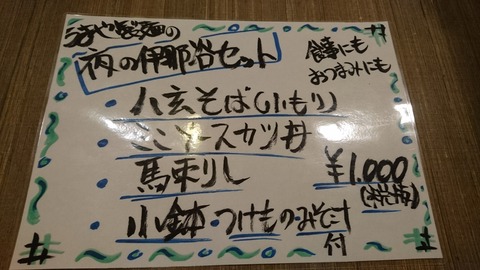 夜の伊那谷セット
食事にも
おつまみにも
・八玄そば(小もり)
・ミニソースカツ丼
・馬刺し
・小鉢・つけもの・みそ汁
付
¥1,000